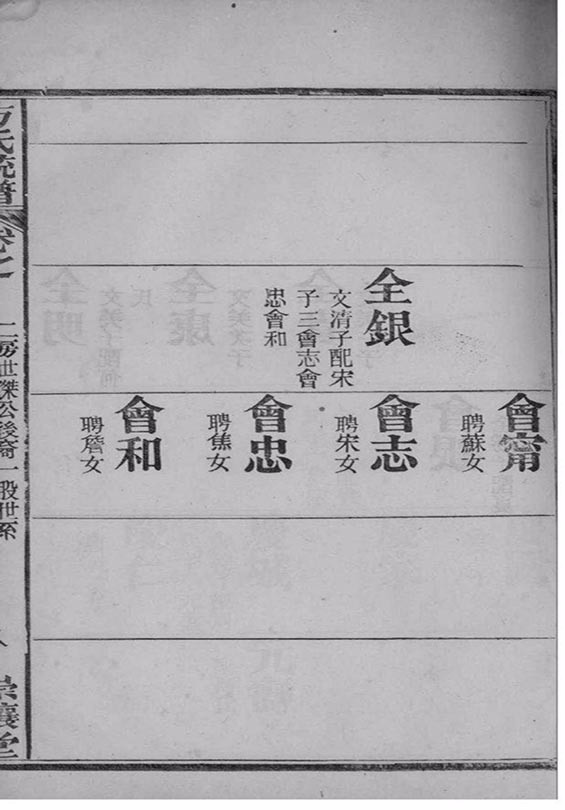 全銀
文清子配宋
子三會志會
忠會和
會甯
聘蘇女
會志
聘宋女
會忠
聘焦女
會和
聘詹女
方氏統譜
卷之一
二房世傑公後裔一股世系
崇讓堂